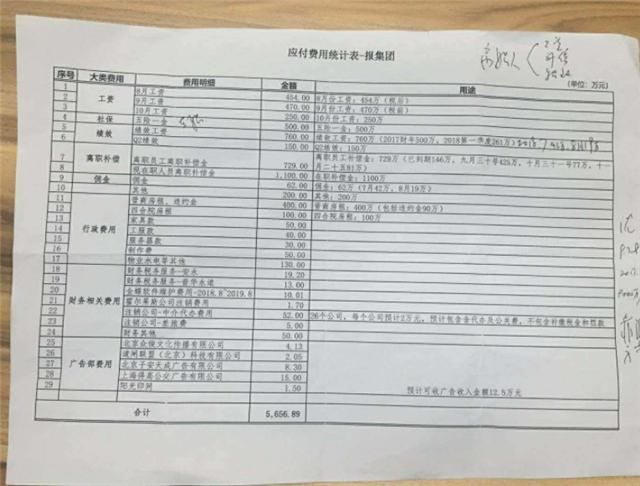 应付费用统计表-报集团
(单位：万元)
序号 大类费用 费用明细 金额 用途
1 工资 8月工资 454.00 8月份工资：454万（税后）
2 9月工资 470.00 9月份工资：470万（税前）
3 10月工资 250.00 10月份工资：250万
4 社保 五险一金 500.00 五险一金：500万
5 绩效 绩效工资 760.00 绩效工资：760万（2017财年500万，2018第一季度261万）
6 Q2绩效 150.00 Q2绩效：150万
7 离职补偿 离职员工离职补偿金 729.00 离职员工补偿金：729万（已到期146万，九月三十号425万，十月三十一号77万，十一月二十五81万）
8 现在职人员离职补偿金 1,100.00 在职补偿金：1100万
9 佣金 佣金 62.00 佣金：62万（7月42万，8月19万）
10 行政费用 其他 200.00 其他：200万
11 晋商房租、违约金 400.00 晋商房租：400万（包括违约金90万）
12 四合院房租 100.00 四合院房租：100万
13 家具款 50.00
14 工服款 40.00
15 服务器款 30.00
16 制作费 50.00
17 物业水电等其他 130.00
18 财务相关费用 财务税务服务-安永 19.20
19 财务税务服务-普华永道 13.00
20 金蝶软件维护费用-2018.8~2019.8 10.01
21 霍尔果斯公司注销费用 1.70
22 注销公司-中介代办费用 52.00 26个公司，每个公司预计2万元，预计包含备代办及公关费，不包含补缴税金和罚款
23 注销公司-差旅费 5.00
24 财务其他 50.00
25 广告部费用 北京众俊文化传播有限公司 4.13
26 道闸联盟（北京）科技有限公司 2.05
27 北京子安天成广告有限公司 8.30
28 上海得高公交广告有限公司 15.00
29 阳光印网 1.50 预计可收广告收入金额12.5万元
合计 5,656.89